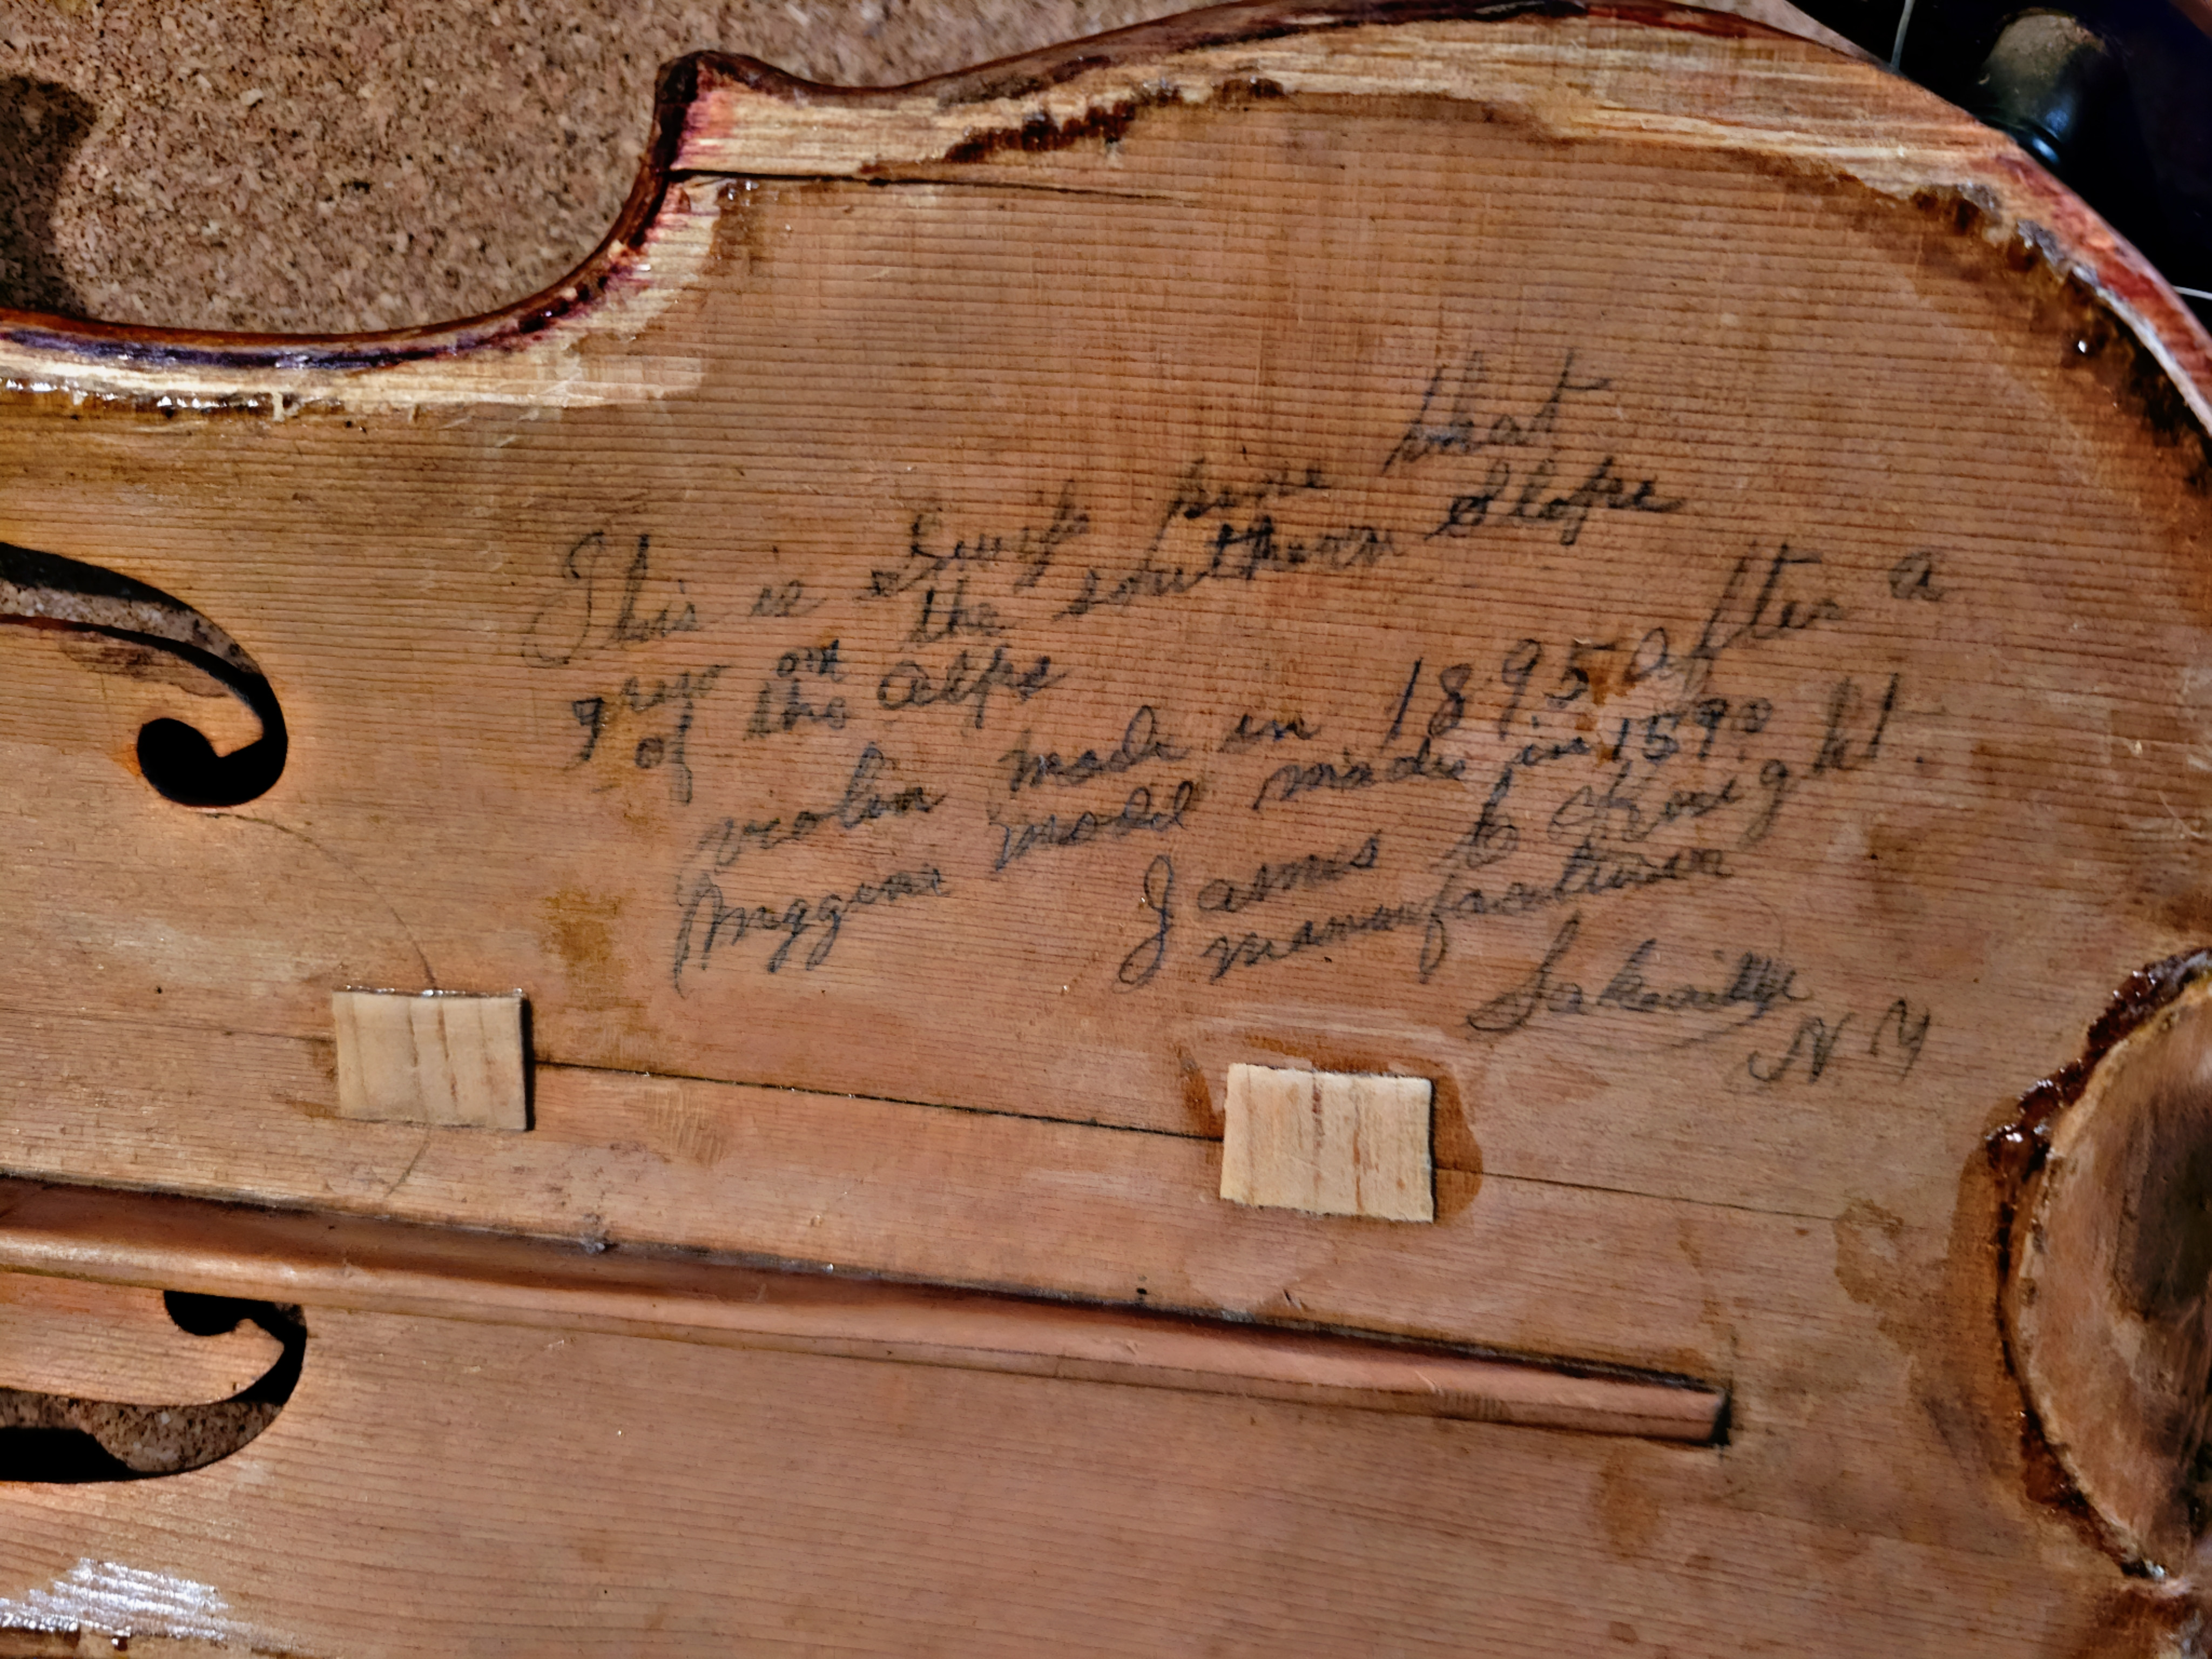 This is Swiss pine that
grew on the southern Slope
of the Alps
violin made in 1895 after a
model made in 1590
James
manufacturer
Lakeville
N. Y